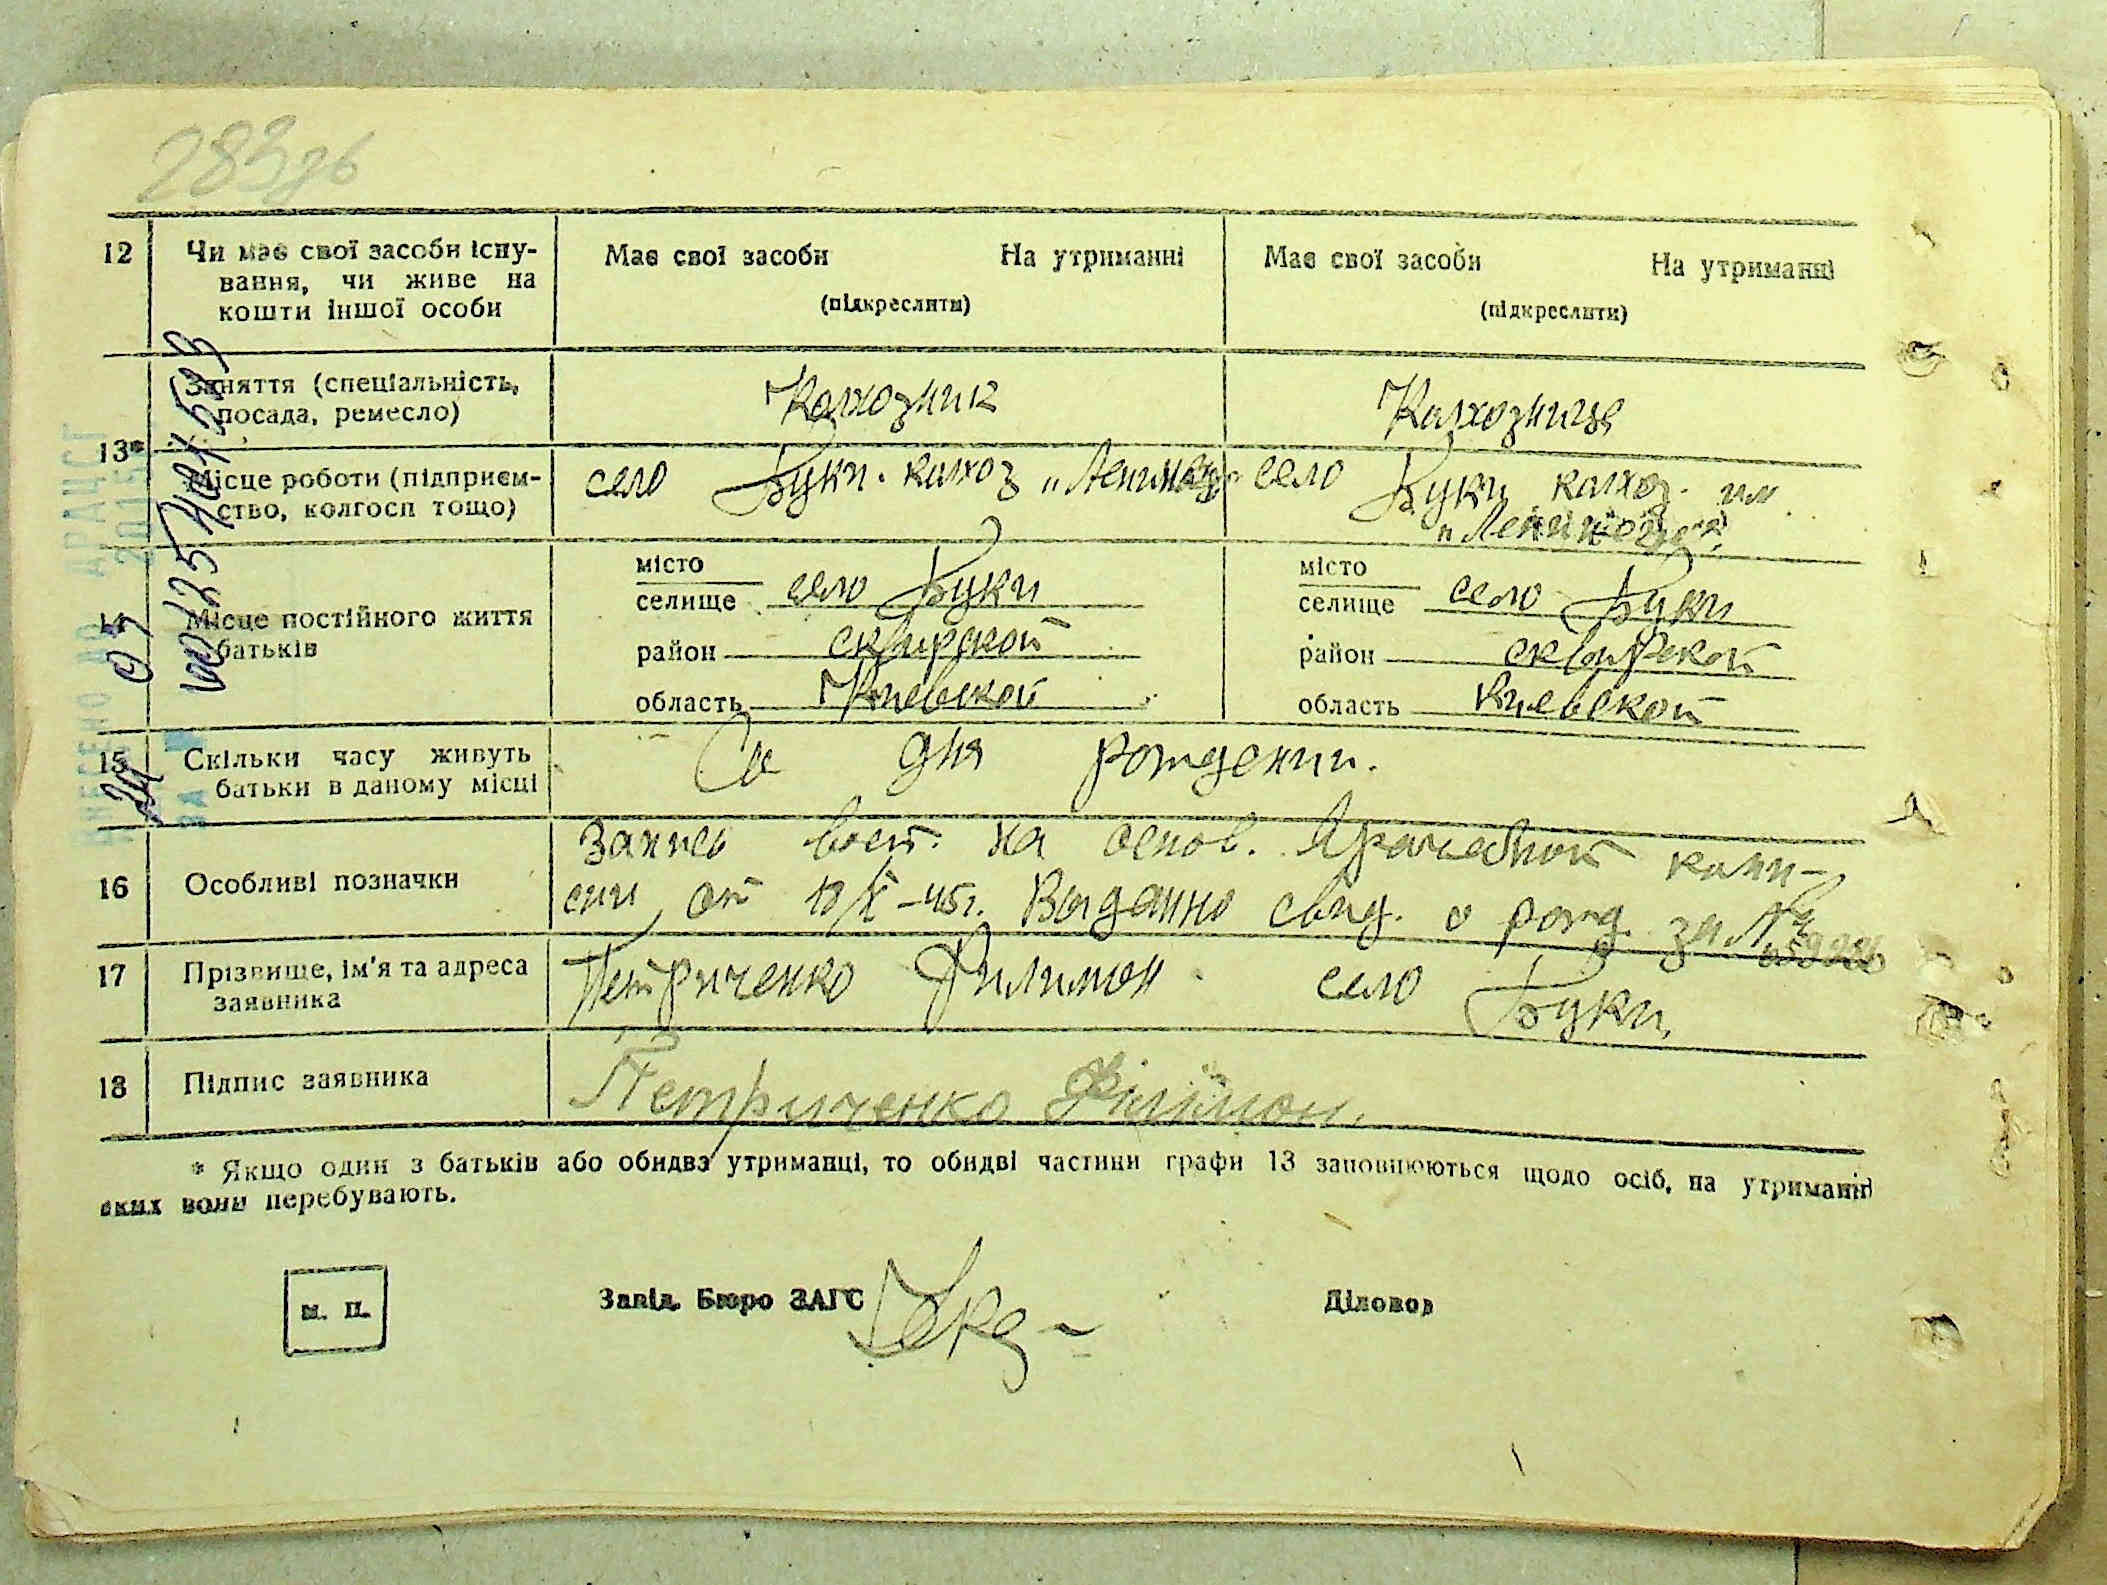 283зв
12 Чи має свої засоби існу- Має свої засоби На утриманні Має свої засоби На утриманні
вання, чи живе на (підкреслити) (підкреслити)
кошти іншої особи
Заняття (спеціальність, Колхозник Колхозница
посада, ремесло)
13*
Місце роботи (підприєм- село Буки. колхоз село Буки колхоз. им
ство, колгосп тощо)
14 Місце постійного життя місто місто
батьків селище село Буки селище село Буки
район сквирской район сквирской
область Киевской область Киевской
15 Скільки часу живуть Со дня рождении.
батьки в даному місці
Запись вост. на основ. Врачебной коми-
16 Особливі позначки сии от 10/X-45г. Выданно свид. о рожд. за №
17 Прізвище, ім'я та адреса Петриченко Филимон село Буки,
заявника
18 Підпис заявника Петриченко Філімон.
* Якщо один з батьків або обидва утриманці, то обидві частини графи 13 заповнюються щодо осіб, на утриманні
яких вони перебувають.
м. п. Завід. Бюро ЗАГС Діловод